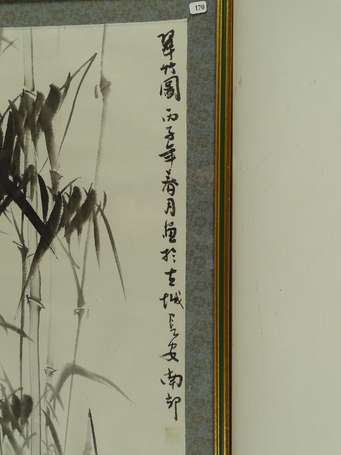 170
翠竹圖丙子年春月畫於古城長安南郊